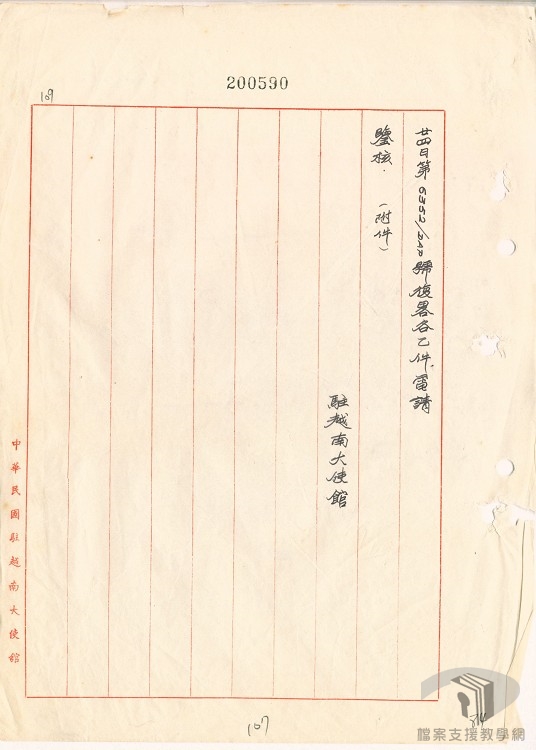 200590
109
廿四日第6352/242號復畧各乙件電請
鑒核．（附件）
駐越南大使館
中華民國駐越南大使館
107
檔案支援教學網